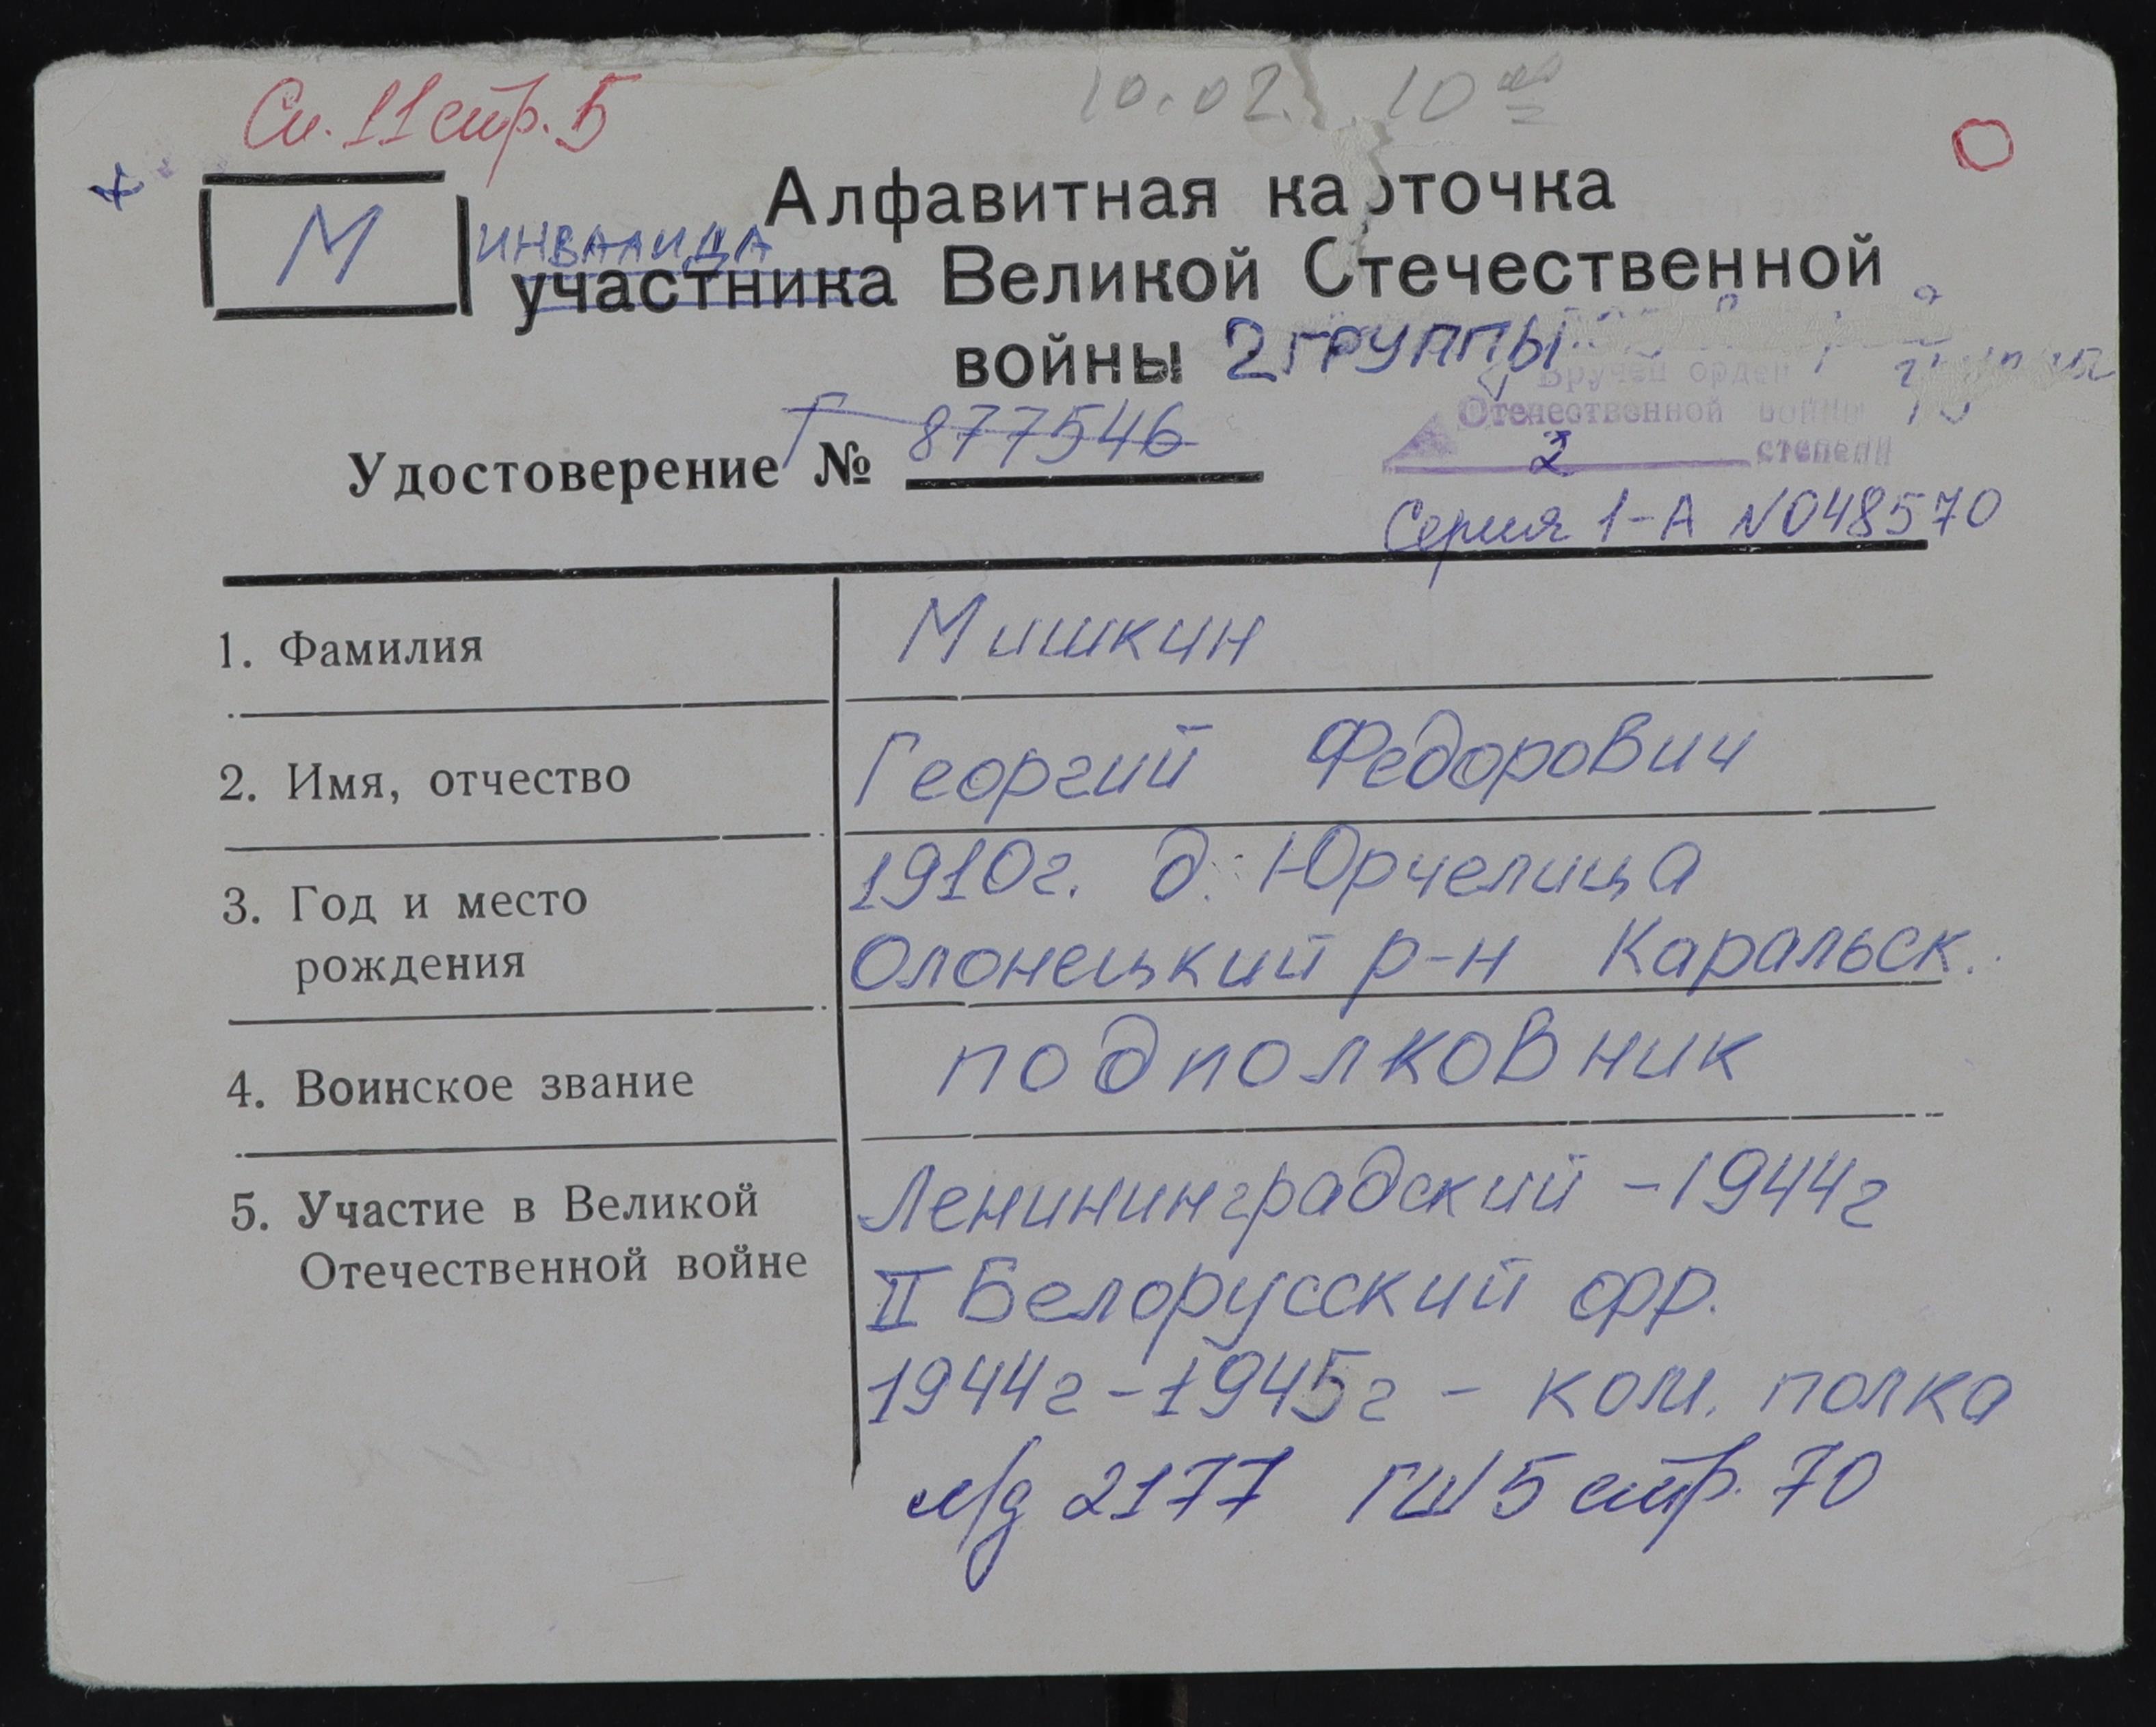 Сп. 11 стр. 5
10.02. 10 00
М
Алфавитная карточка
ИНВАЛИДА
участника Великой Отечественной
войны 2 ГРУППЫ
Вручен орден
Отечественной войны
2 степени
Удостоверение № Г 877546
Серия 1-А N048570
1. Фамилия
Мишкин
2. Имя, отчество
Георгий Федорович
3. Год и место
рождения
1910г. д. Юрчелица
Олонецкий р-н Каральск.
4. Воинское звание
подполковник
5. Участие в Великой
Отечественной войне
Ленининградский - 1944г
II Белорусский фр.
1944г - 1945г - ком. полка
л/д 2177 ГШ 5 стр. 70